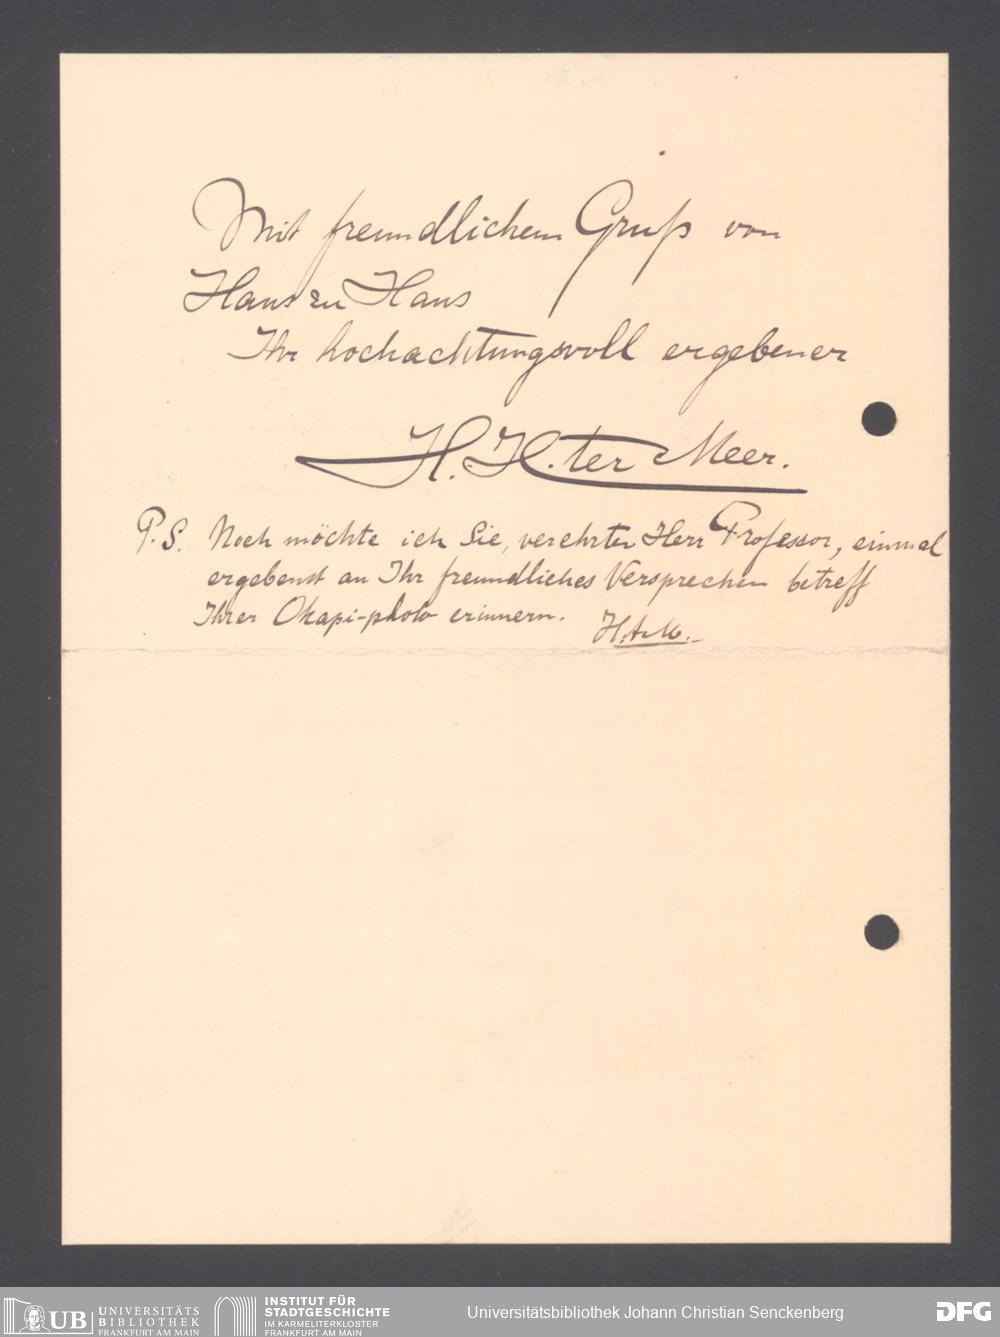 Mit freundlichem Gruß von
Haus zu Haus
Ihr hochachtungsvoll ergebener
H. H. ter Meer.
P.S. Noch möchte ich Sie, verehrter Herr Professor, einmal
ergebenst an Ihr freundliches Versprechen betreff
Ihrer Okapi-photo erinnern.
H.t.M.
UB UNIVERSITÄTS
BIBLIOTHEK
FRANKFURT AM MAIN
INSTITUT FÜR
STADTGESCHICHTE
IM KARMELITERKLOSTER
FRANKFURT AM MAIN
Universitätsbibliothek Johann Christian Senckenberg
DFG